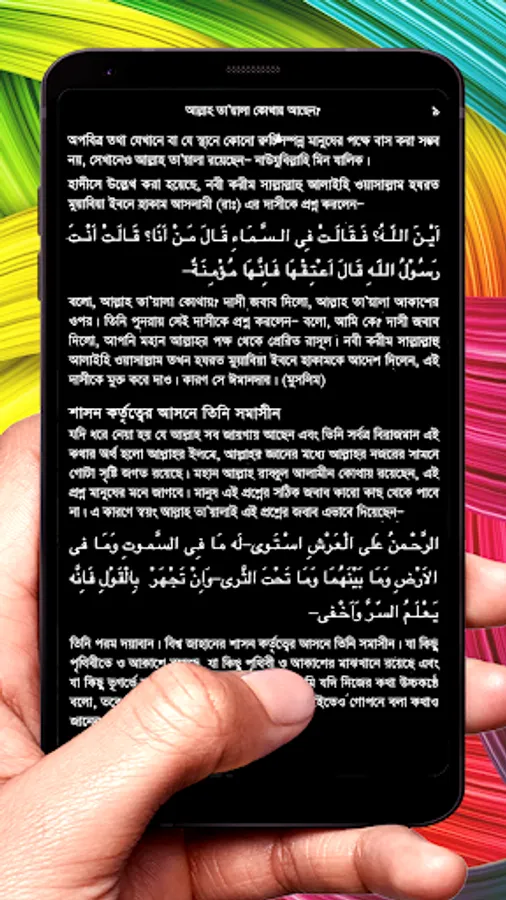 আল্লাহ তা'য়ালা কোথায় আছেন?
৯
অপবিত্র তথা যেখানে বা যে স্থানে কোনো রুচিসম্পন্ন মানুষের পক্ষে বাস করা সম্ভব
নয়, সেখানেও আল্লাহ তা'য়ালা রয়েছেন- নাউযুবিল্লাহি মিন যালিক।
হাদীসে উল্লেখ করা হয়েছে, নবী করীম সাল্লাল্লাহু আলাইহি ওয়াসাল্লাম হযরত
মুয়াবিয়া ইবনে হাকাম আসলামী (রাঃ) এর দাসীকে প্রশ্ন করলেন-
اَيْنَ اللّٰهُ؟ فَقَالَتْ فِى السَّمَاءِ قَالَ مَنْ اَنَا؟ قَالَتْ اَنْتَ
رَسُوْلُ اللّٰهِ قَالَ اَعْتِقْهَا فَاِنَّهَا مُؤْمِنَةٌ-
বলো, আল্লাহ তা'য়ালা কোথায়? দাসী জবাব দিলো, আল্লাহ তা'য়ালা আকাশের
ওপর। তিনি পুনরায় সেই দাসীকে প্রশ্ন করলেন- বলো, আমি কে? দাসী জবাব
দিলো, আপনি মহান আল্লাহর পক্ষ থেকে প্রেরিত রাসূল। নবী করীম সাল্লাল্লাহু
আলাইহি ওয়াসাল্লাম তখন হযরত মুয়াবিয়া ইবনে হাকামকে আদেশ দিলেন, এই
দাসীকে মুক্ত করে দাও। কারণ সে ঈমানদার। (মুসলিম)
শাসন কর্তৃত্বের আসনে তিনি সমাসীন
যদি ধরে নেয়া হয় যে আল্লাহ সব জায়গায় আছেন এবং তিনি সর্বত্র বিরাজমান এই
কথার অর্থ হলো আল্লাহর ইলমে, আল্লাহর জ্ঞানের মধ্যে আল্লাহর নজরের সামনে
গোটা সৃষ্টি জগত রয়েছে। মহান আল্লাহ রাব্বুল আলামীন কোথায় রয়েছেন, এই
প্রশ্ন মানুষের মনে জাগবে। মানুষ এই প্রশ্নের সঠিক জবাব কারো কাছ থেকে পাবে
না। এ কারণে স্বয়ং আল্লাহ তা'য়ালাই এই প্রশ্নের জবাব এভাবে দিয়েছেন-
الرَّحْمٰنُ عَلَى الْعَرْشِ اسْتَوٰى-لَه مَا فِى السَّمٰوٰتِ وَمَا فِى
الْاَرْضِ وَمَا بَيْنَهُمَا وَمَا تَحْتَ الثَّرٰى-وَاِنْ تَجْهَرْ بِالْقَوْلِ فَاِنَّه
يَعْلَمُ السِّرَّ وَاَخْفٰى-
তিনি পরম দয়াবান। বিশ্ব জাহানের শাসন কর্তৃত্বের আসনে তিনি সমাসীন। যা কিছু
পৃথিবীতে ও আকাশে যা কিছু পৃথিবী ও আকাশের মাঝখানে রয়েছে এবং
যা কিছু ভূগর্ভে যদি নিজের কথা উচ্চকণ্ঠে
বলো, গোপনে বলা কথাও